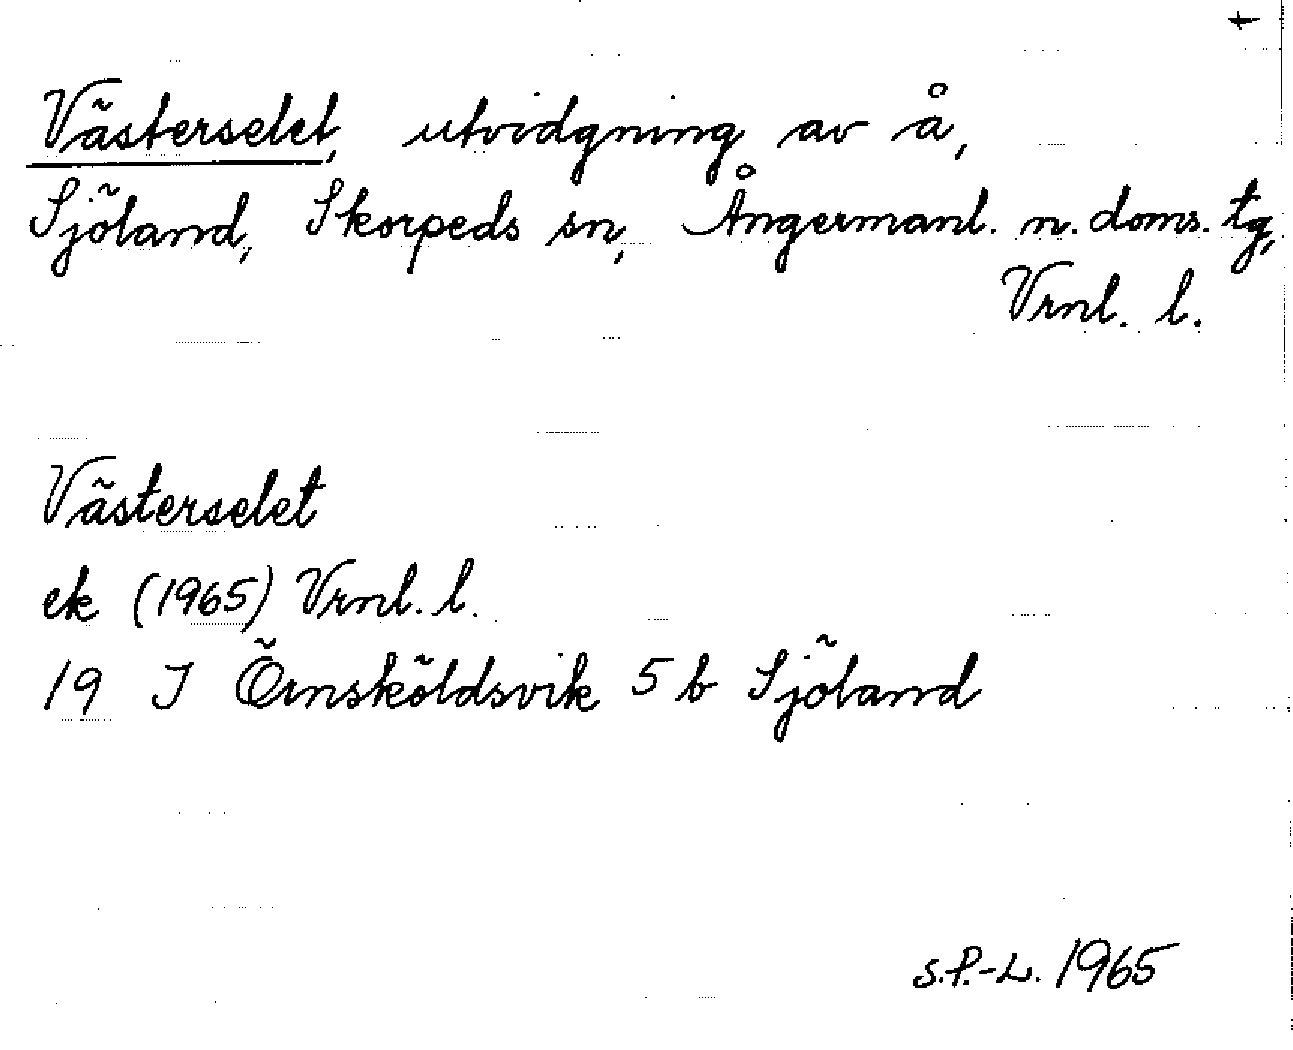 +
Västerselet, utvidgning av å,
Sjöland, Skorpeds sn, Ångermanl. n. doms. tg,
Vrnl. l.
Västerselet
ek (1965) Vrnl. l.
19 J Örnsköldsvik 5 b Sjöland
S.P.-L. 1965